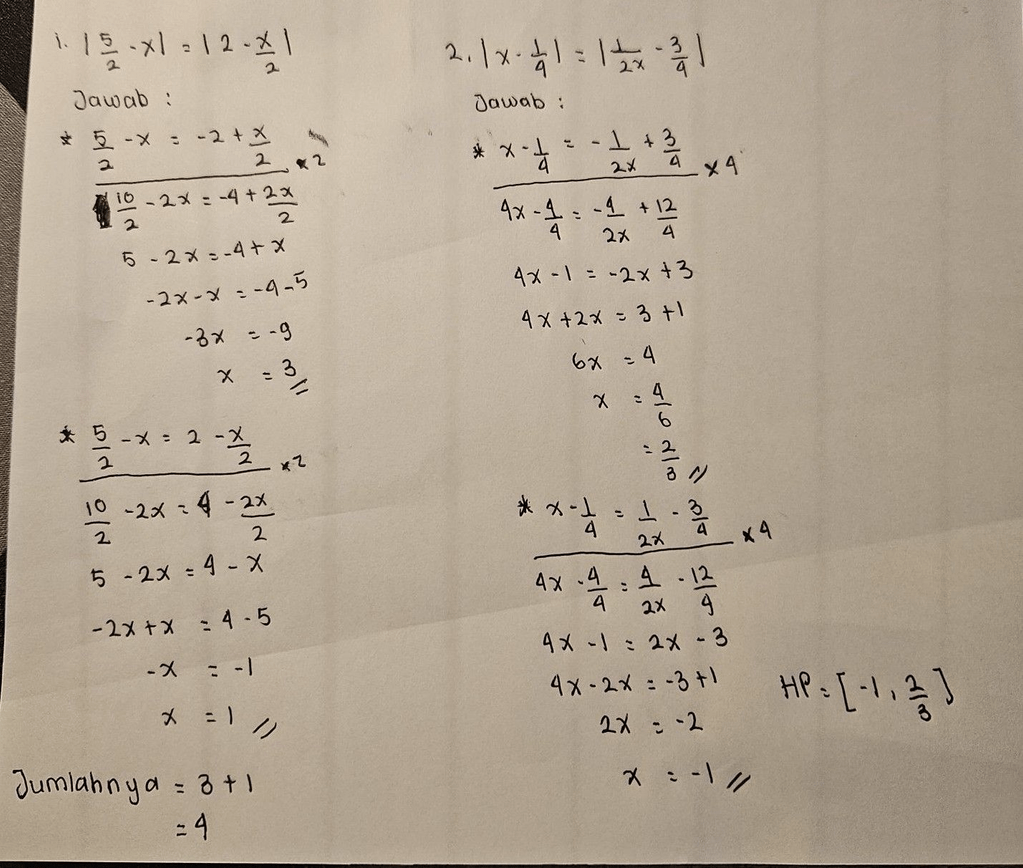 1. |5/2 - x| = |2 - x/2|
Jawab :
* 5/2 - x = -2 + x/2 ×2
10/2 - 2x = -4 + 2x/2
5 - 2x = -4 + x
-2x - x = -4 - 5
-3x = -9
x = 3 //
* 5/2 - x = 2 - x/2 ×2
10/2 - 2x = 4 - 2x/2
5 - 2x = 4 - x
-2x + x = 4 - 5
-x = -1
x = 1 //
Jumlahnya = 3 + 1
= 4
2. |x - 1/4| = |1/2x - 3/4|
Jawab :
* x - 1/4 = -1/2x + 3/4 ×4
4x - 4/4 = -4/2x + 12/4
4x - 1 = -2x + 3
4x + 2x = 3 + 1
6x = 4
x = 4/6
= 2/3 //
* x - 1/4 = 1/2x - 3/4 ×4
4x - 4/4 = 4/2x - 12/4
4x - 1 = 2x - 3
4x - 2x = -3 + 1
2x = -2
x = -1 //
HP = [-1, 2/3]